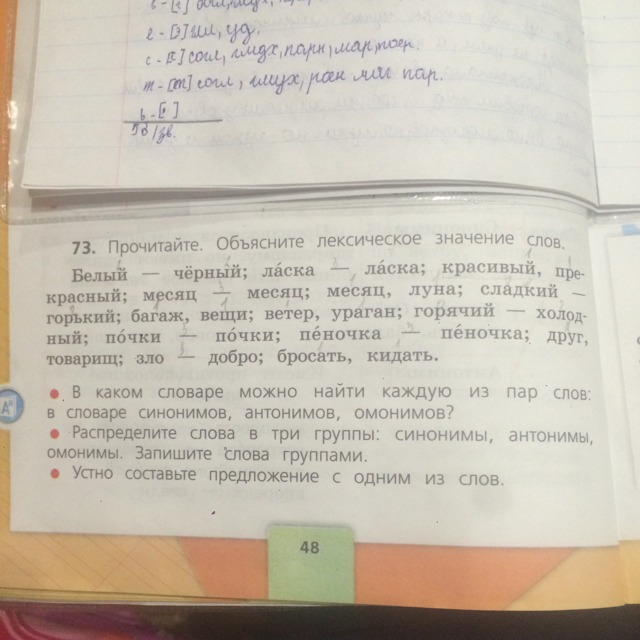 е - [э] гл, уд.
т - [т] согл, глух, пар.
5б/зв.
73. Прочитайте. Объясните лексическое значение слов.
Белый — чёрный; ла́ска — ла́ска; красивый, пре-
красный; месяц — месяц; месяц, луна; сладкий —
горький; багаж, вещи; ветер, ураган; горячий — холод-
ный; по́чки — по́чки; пе́ночка — пе́ночка; друг,
товарищ; зло — добро; бросать, кидать.
• В каком словаре можно найти каждую из пар слов:
в словаре синонимов, антонимов, омонимов?
• Распределите слова в три группы: синонимы, антонимы,
омонимы. Запишите слова группами.
• Устно составьте предложение с одним из слов.
48